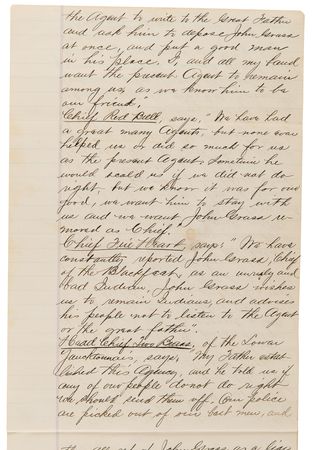 the Agent to write to the Great Father
and ask him to depose John Grass
at once, and put a good man
in his place. I and all my band
want the present Agent to remain
among us, as we know him to be
our friend."
Chief Red Bull, says, "We have had
a great many Agents, but none ever
helped us or did so much for us
as the present Agent. Sometimes he
would scold us if we did not do
right, but we know it was for our
good, we want him to stay with
us and we want John Grass re-
moved as Chief."
Chief Fire Heart, says: "We have
constantly reported John Grass, Chief
of the Blackfeet, as an unruly and
bad Indian, John Grass wishes
us to remain Indians, and advises
his people not to listen to the Agent
or the great father."
Head Chief Two Bears, of the Lower
Yanctonnais, says, "My Father estab-
lished this Agency, and he told us if
any of our people do not do right
we should send them off. Our police
are picked out of our best men, and
of John Grass as a